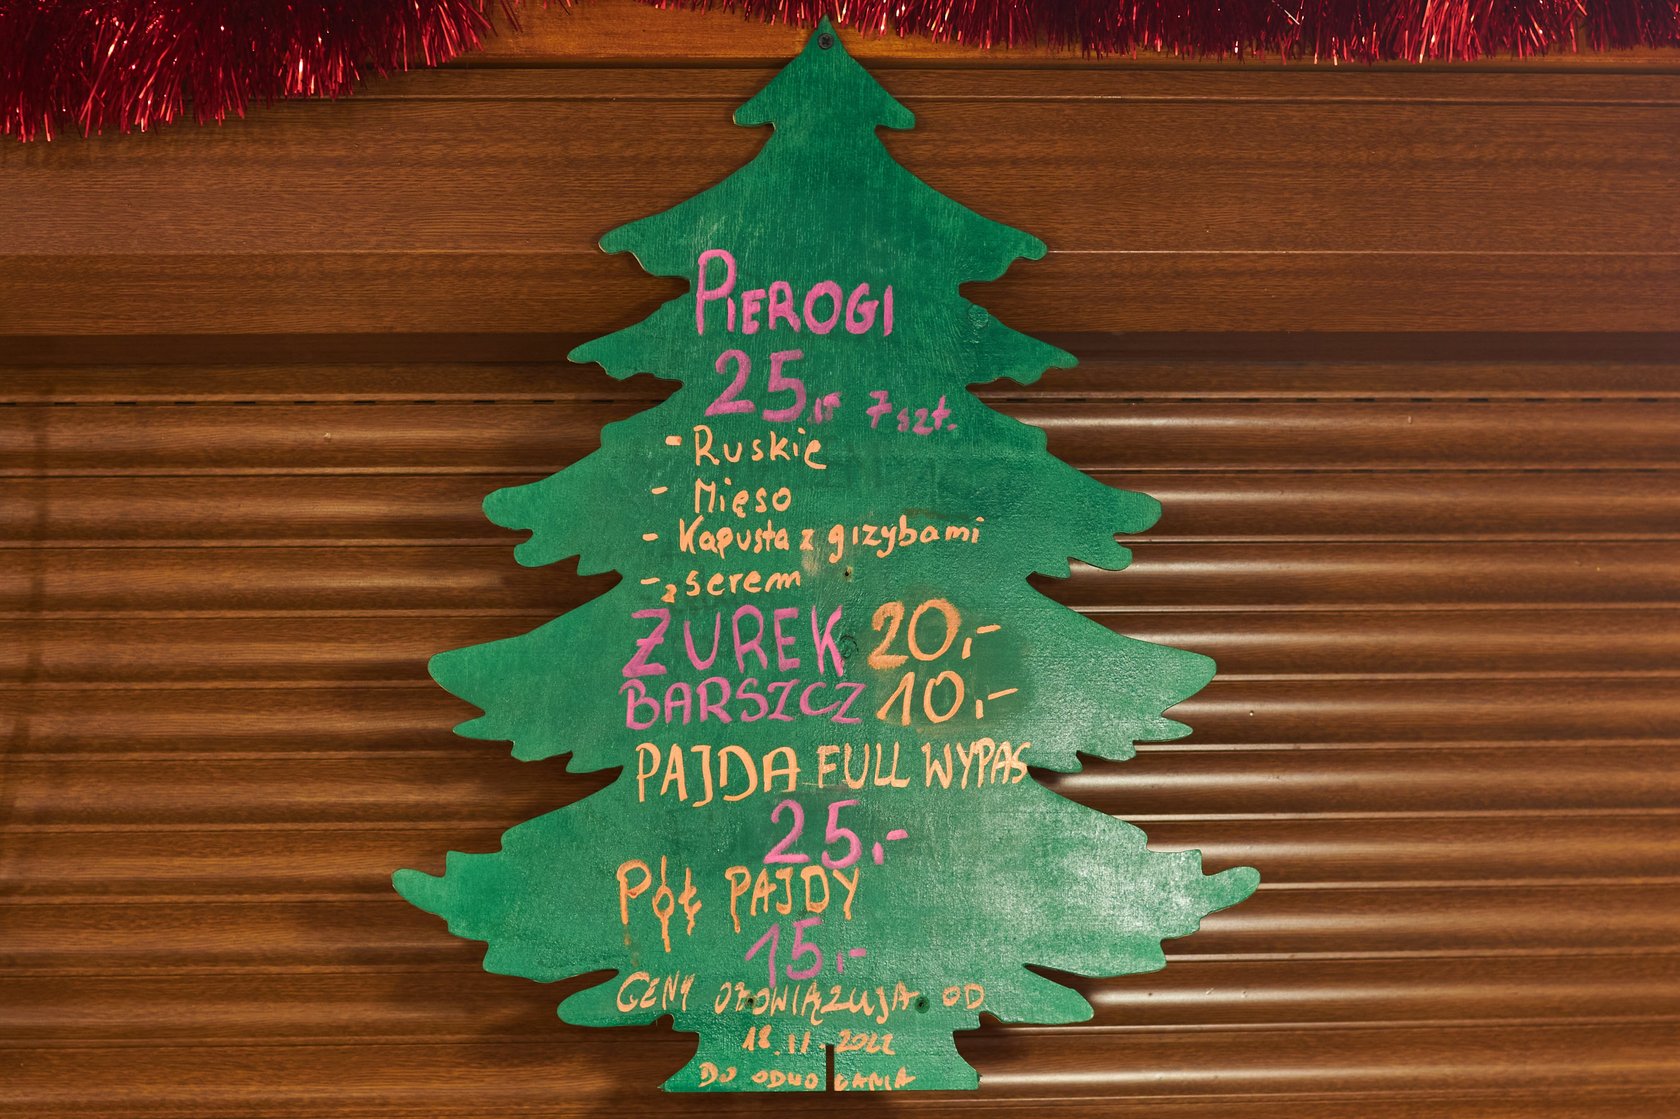 PIEROGI
25,- 7 szt.
- Ruskie
- Mięso
- Kapusta z grzybami
- z serem
ŻUREK 20,-
BARSZCZ 10,-
PAJDA FULL WYPAS
25,-
PÓŁ PAJDY
15,-
CENY OBOWIĄZUJĄ OD
18.11.2022
DO ODWOŁANIA